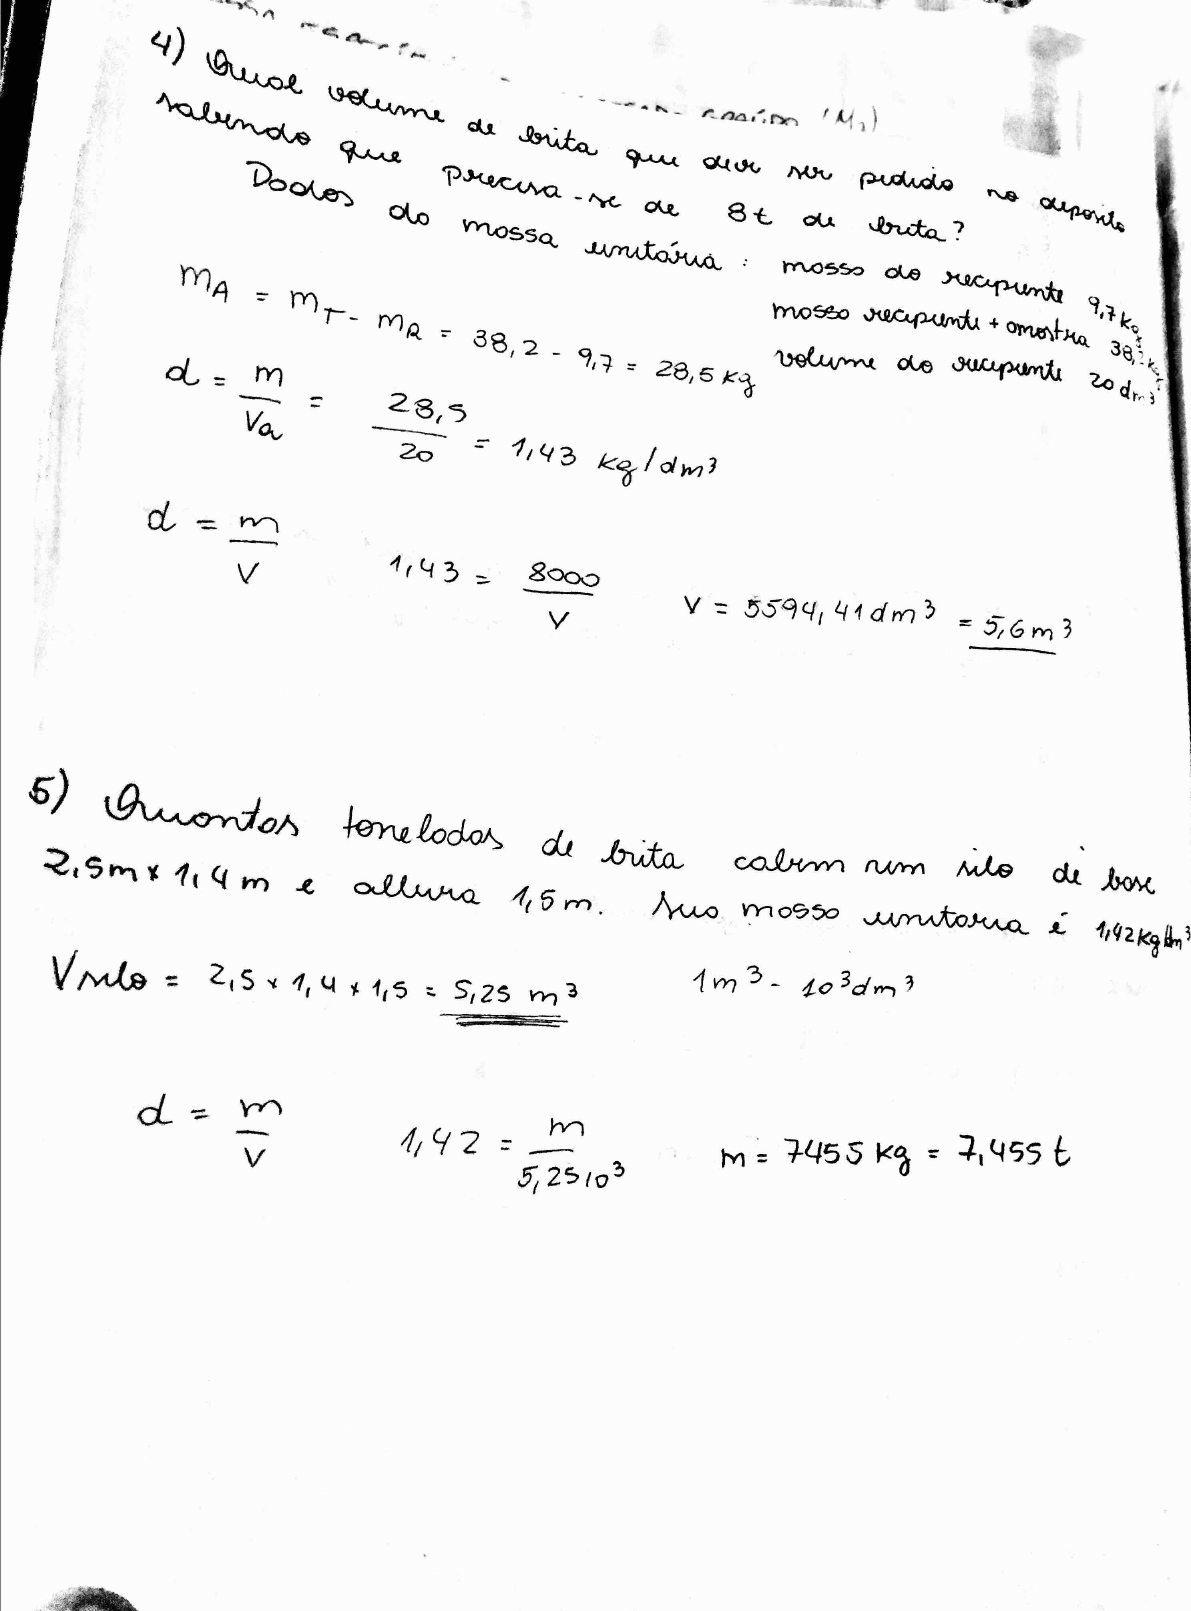 (M₂)
4) Qual volume de brita que deve ser pedido no deposito
sabendo que precisa-se de 8t de brita?
Dados da massa unitária: massa do recipiente 9,7 kg
massa recipiente + amostra 38,2 kg
volume do recipiente 20 dm³
mA = mT - mR = 38,2 - 9,7 = 28,5 kg
d = m/Va = 28,5/20 = 1,43 kg/dm³
d = m/V 1,43 = 8000/V V = 5594,41 dm³ = 5,6 m³
5) Quantas toneladas de brita cabem num silo de base
2,5m x 1,4m e altura 1,5m. Sua massa unitaria é 1,42 kg/dm³
Vsilo = 2,5 x 1,4 x 1,5 = 5,25 m³ 1m³ - 10³dm³
d = m/V 1,42 = m/5,25 10³ m = 7455 kg = 7,455 t